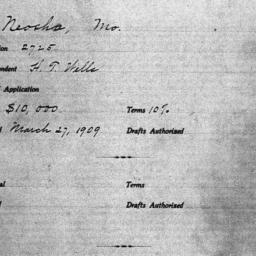 Neosho, Mo.
ion 2725
ondent H. T. Wells
Application
$10,000 Terms 10%
March 27, 1909 Drafts Authorized
al Terms
Drafts Authorized